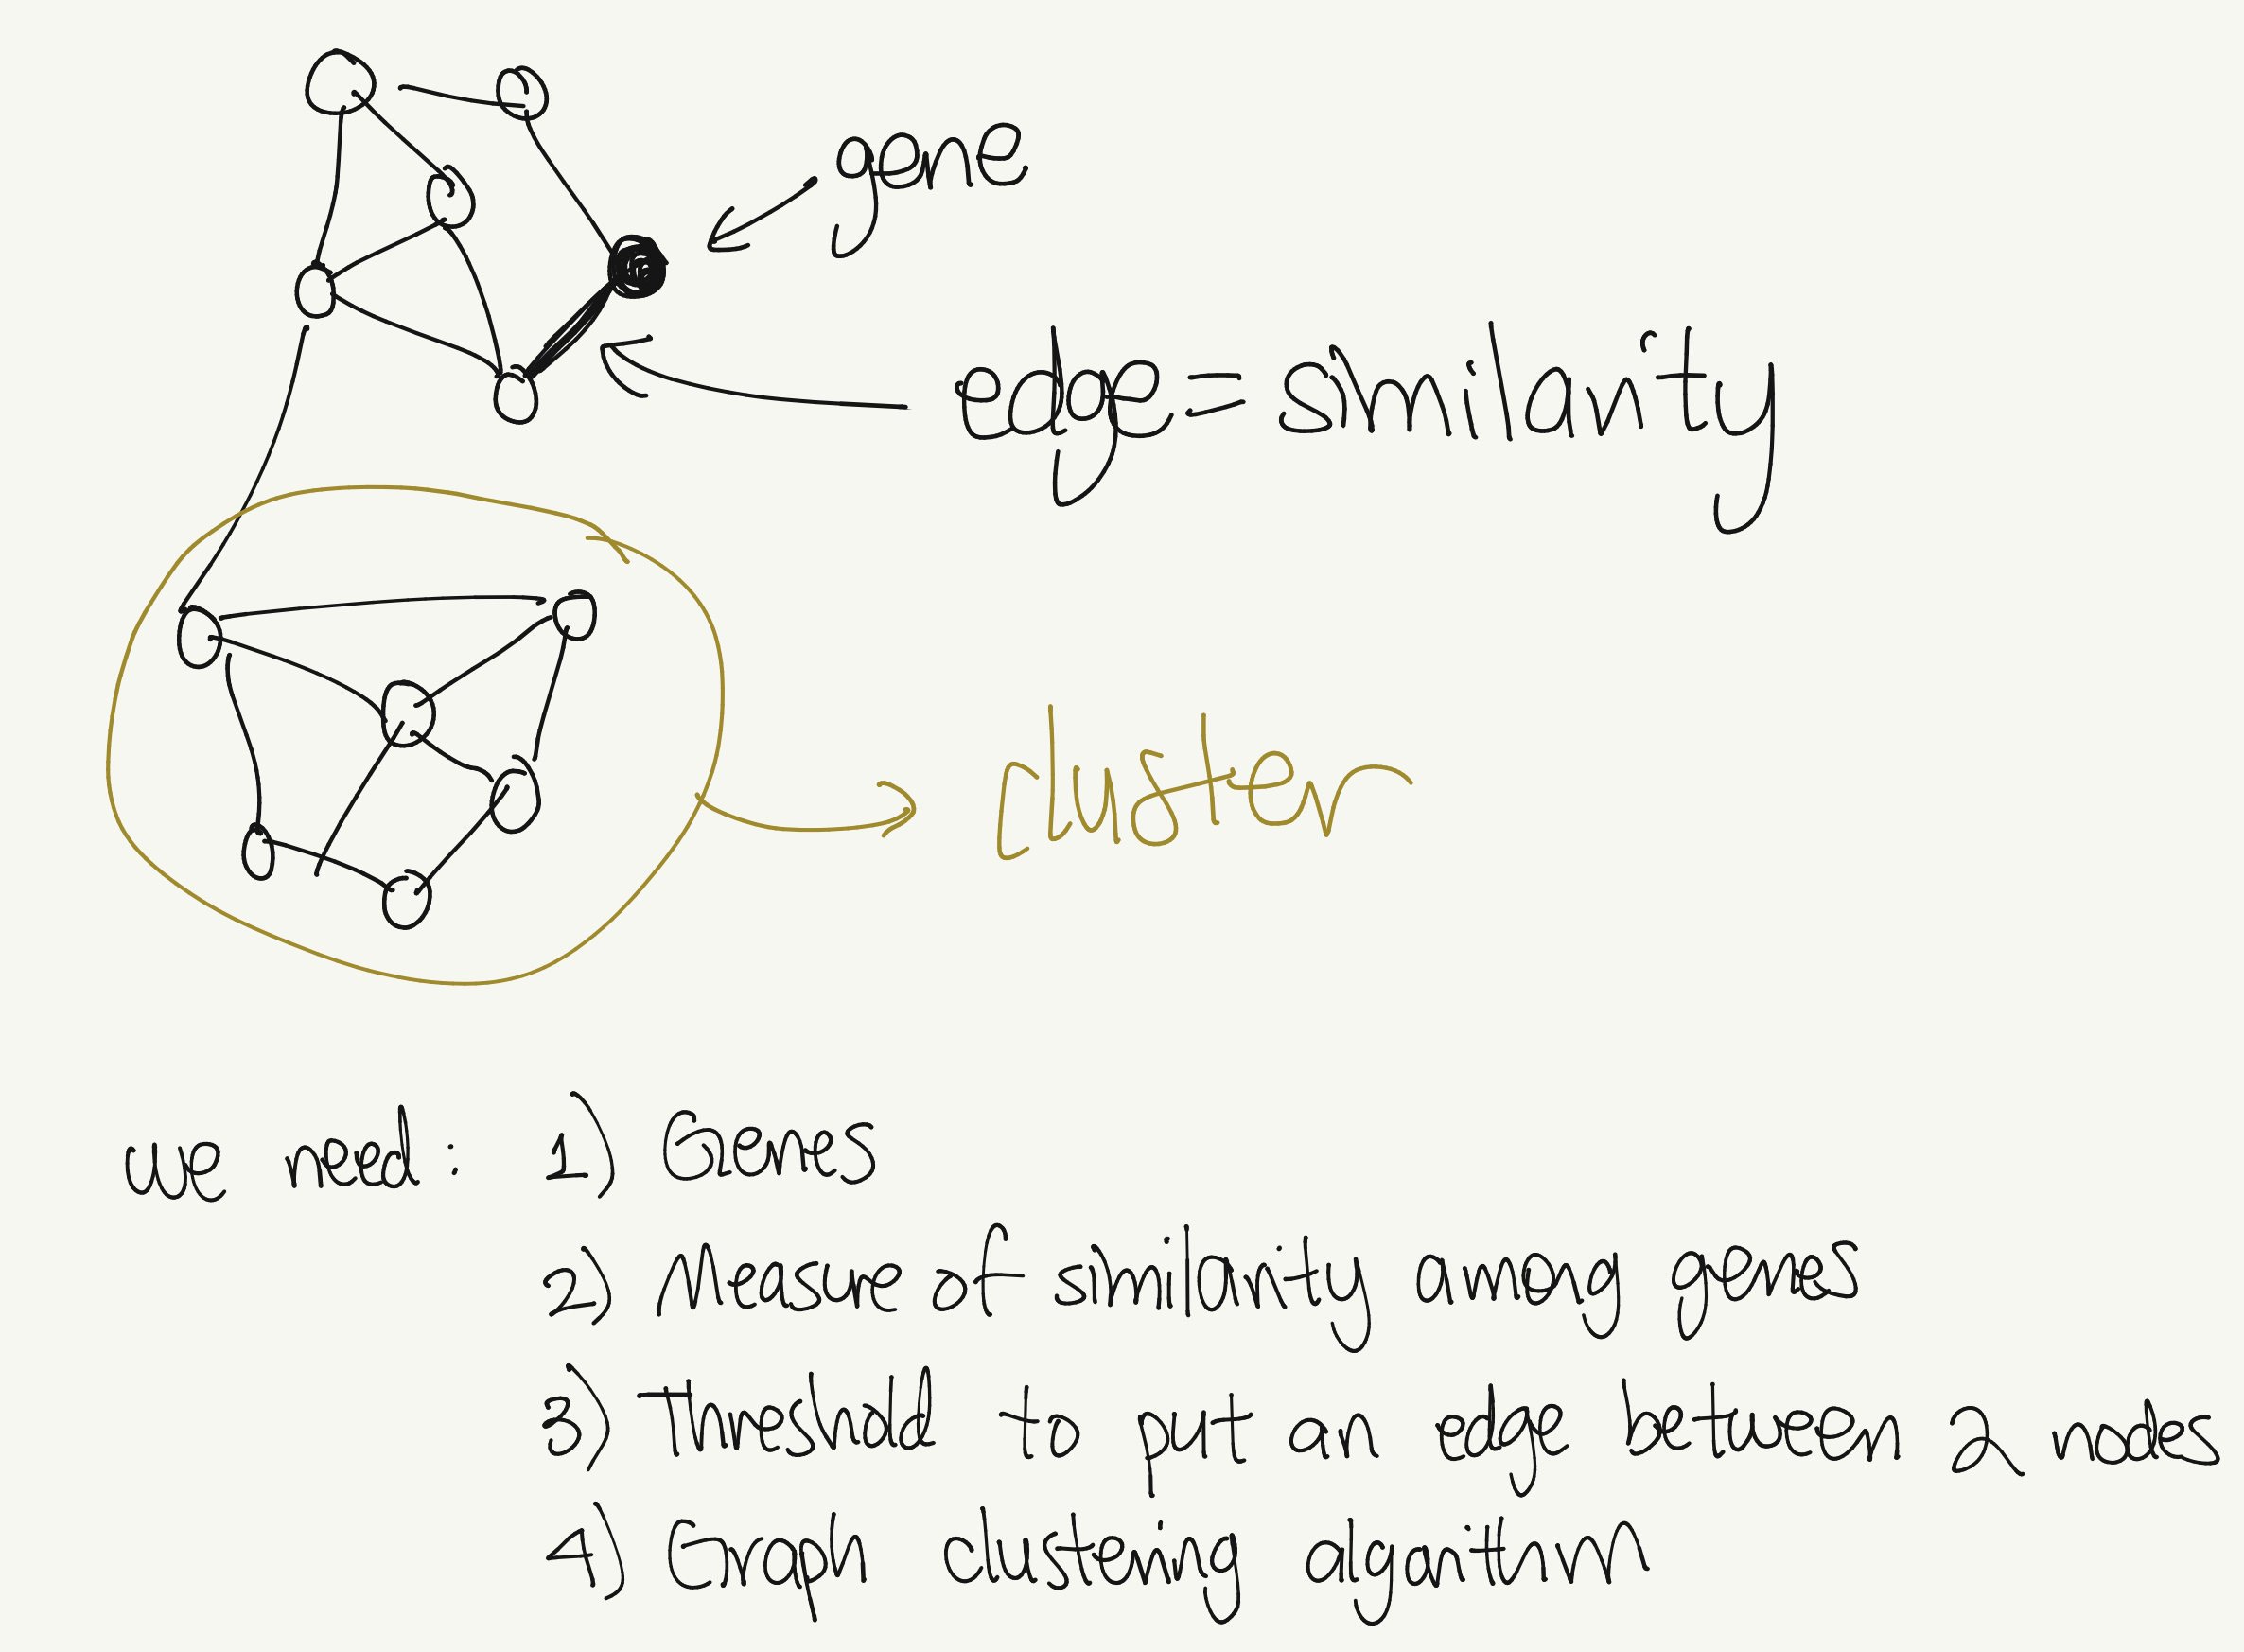 gene
edge = similarity
cluster
we need: 1) Genes
2) Measure of similarity among genes
3) Threshold to put an edge between 2 nodes
4) Graph clustering algorithm